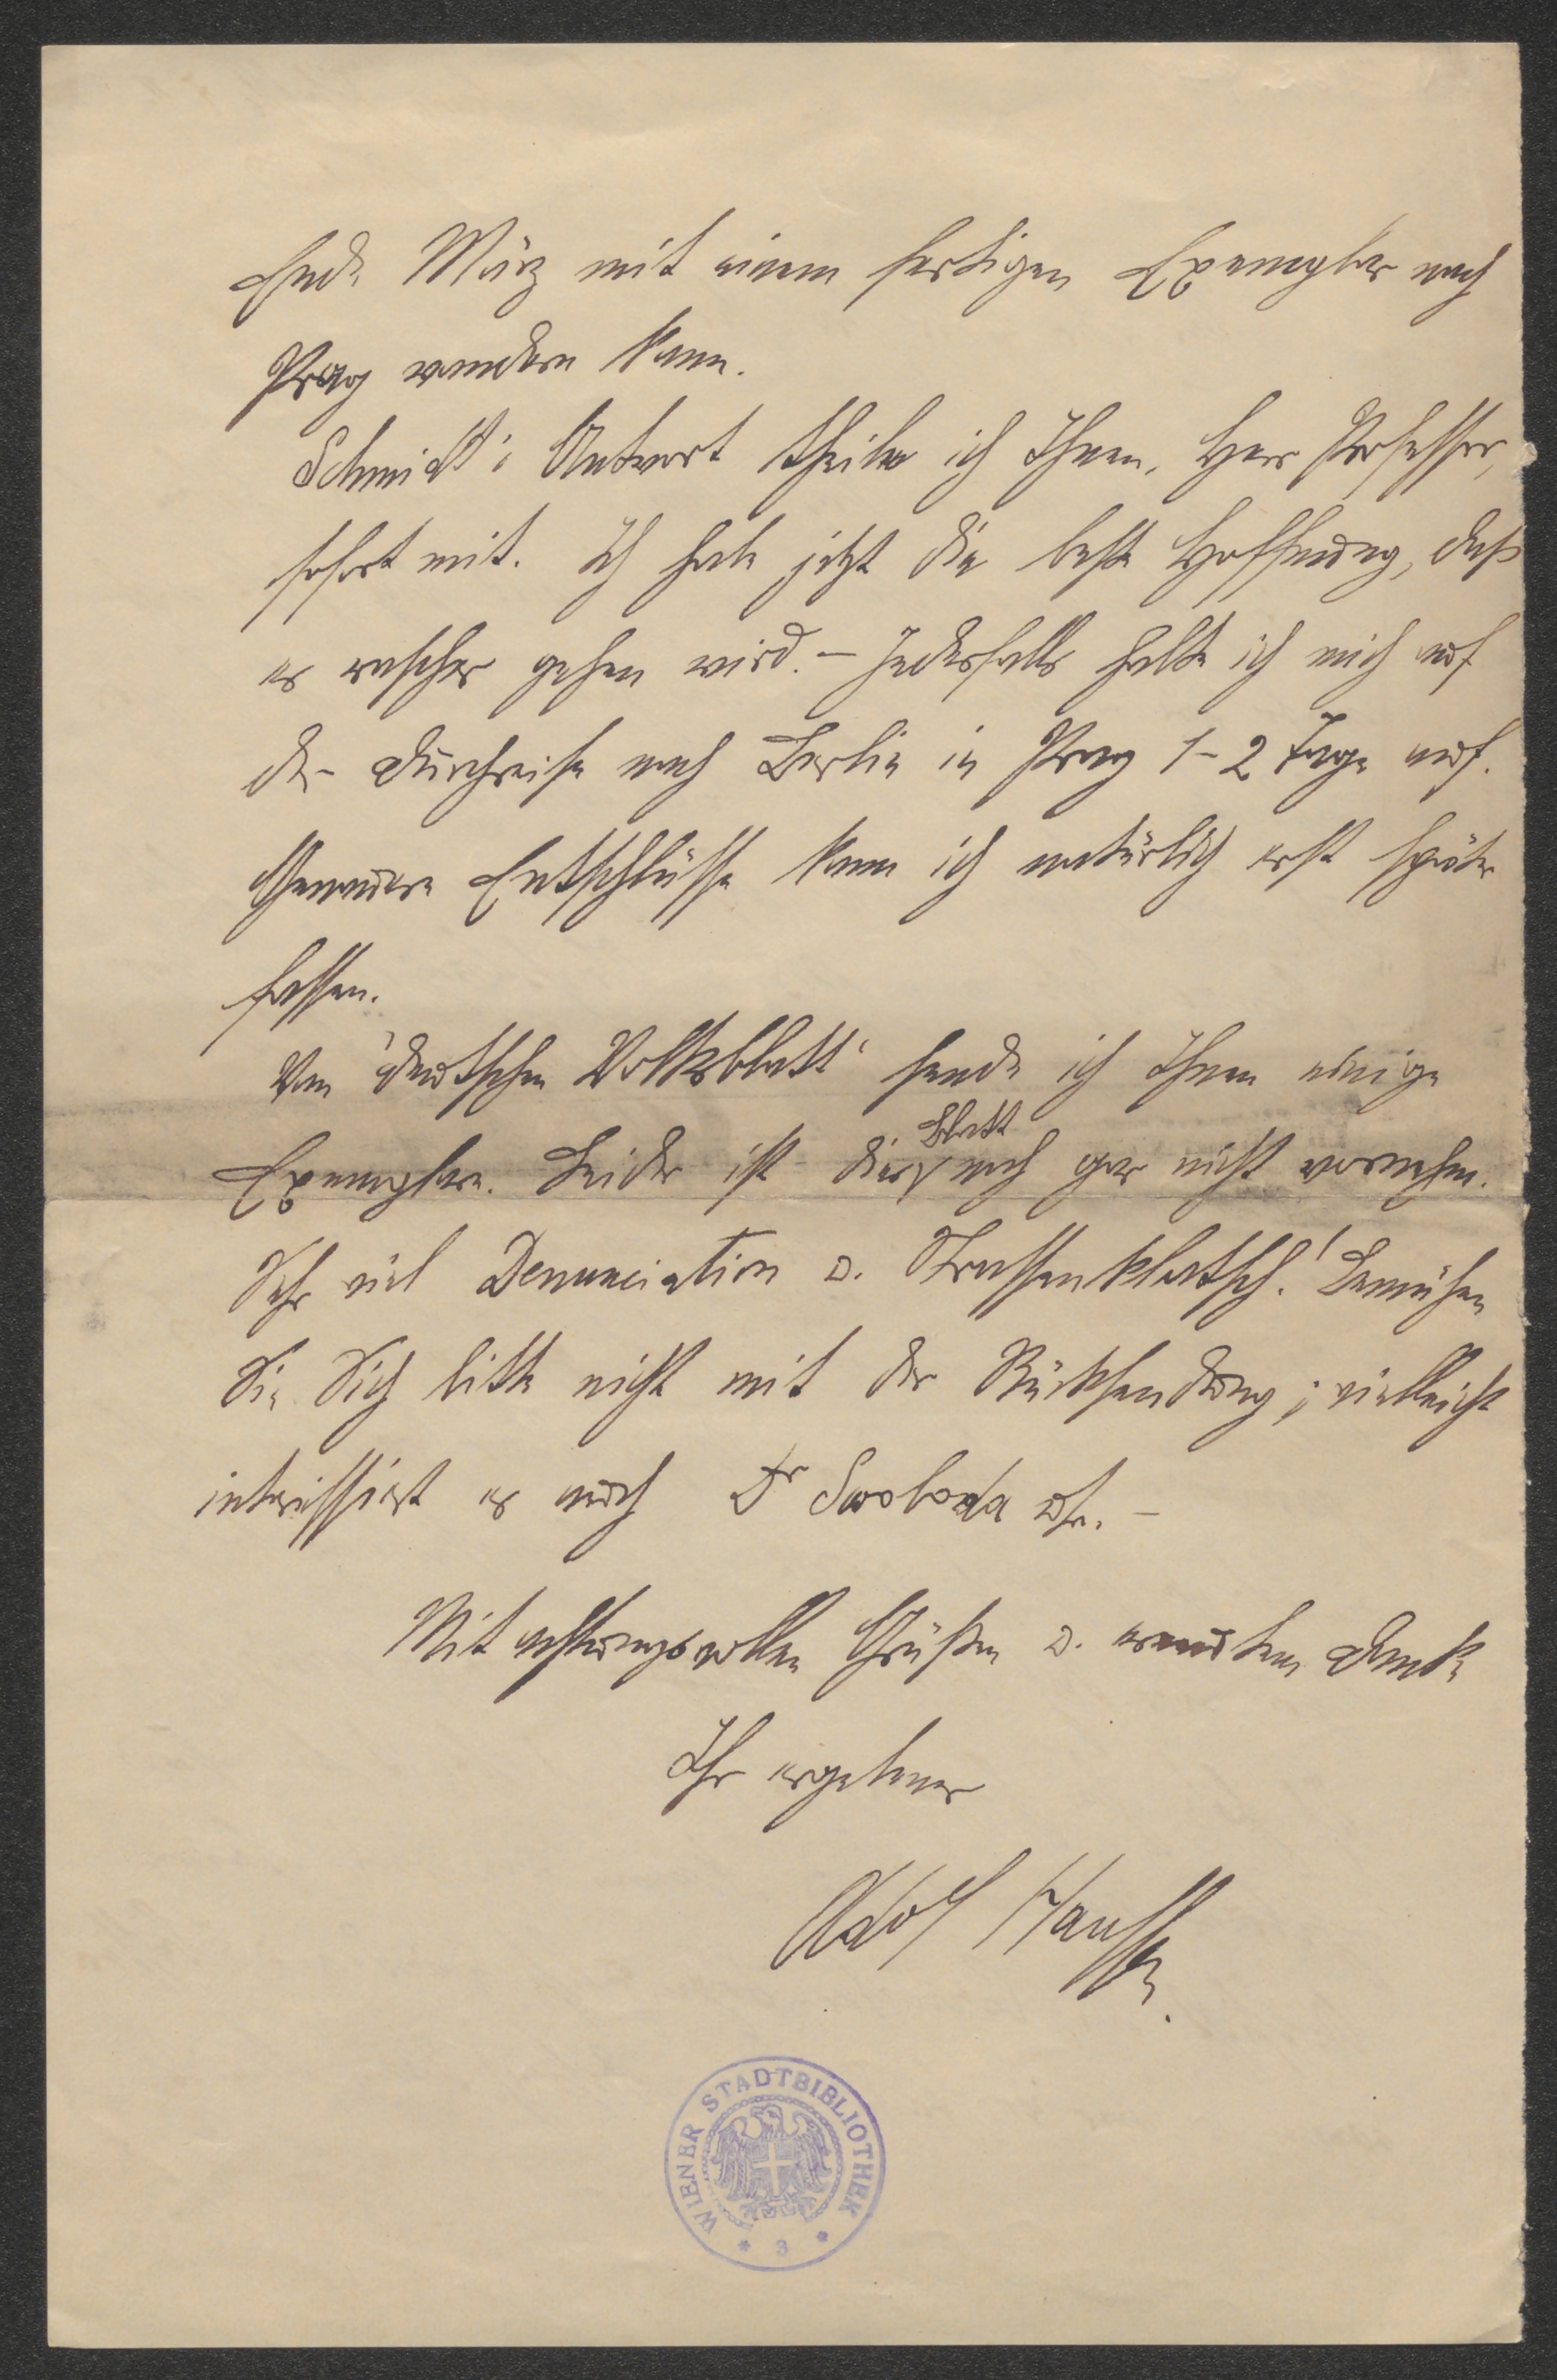 Ende März mit einem fertigen Exemplar nach
Prag wandern kann.
Schmidt's Antwort theile ich Ihnen, Herr Professor,
sofort mit. Ich habe jetzt die beste Hoffnung, daß
es rascher gehen wird. – Jedesfalls halte ich mich auf
der Durchreise nach Berlin in Prag 1–2 Tage auf.
Genauere Entschlüsse kann ich natürlich erst später
fassen.
Vom 'deutschen Volksblatt' sende ich Ihnen einige
Exemplare. Leider ist dies Blatt noch gar nicht vornehm.
Sehr viel Denunciation u. Strassenklatsch! Bemühen
Sie Sich bitte nicht mit der Rücksendung; vielleicht
interessiert es auch Dr Swoboda etc. –
Mit achtungsvollen Grüßen u. erneutem Danke
Ihr ergebener
Adolf Hauffen.
WIENER STADTBIBLIOTHEK
* 3 *